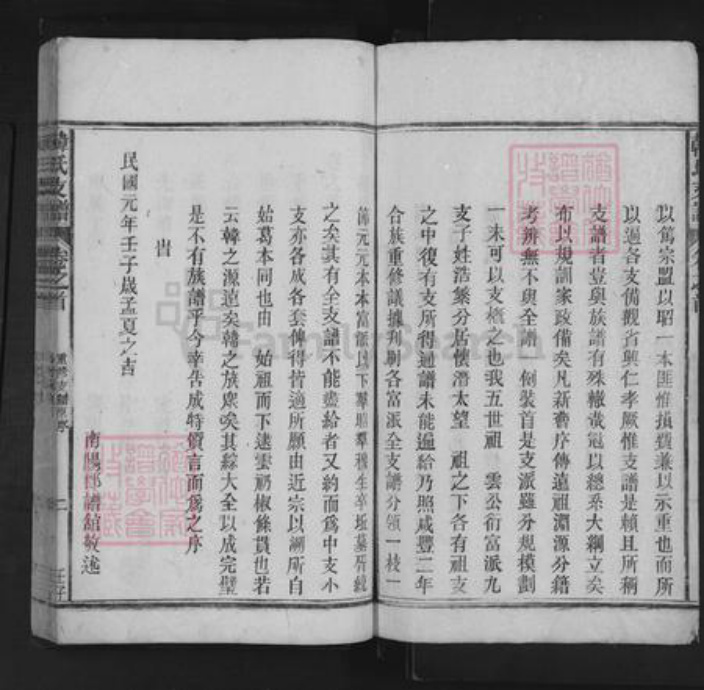 以篤宗盟以昭一本匪惟損費兼以示重也而所
以過各支備觀省興仁孝厥惟支譜是賴且所稱
支譜者豈與族譜有殊轍哉冠以總系大綱立矣
布以規訓家政備矣凡新舊序傳遠祖淵源分籍
考辨無不與全譜一例裝首是支派雖分規模劃
一未可以支燈之也我五世祖 雲公衍富派九
支子姓浩繁分居懷潛太望 祖之下各有祖支
之中復有支所得通譜未能遍給乃照咸豐二年
合族重修議據刋刷各富派全支譜分領一枝一
節元元本本富譜以下羣昭羣穆生卒坵墓厝統
之矣其有全支譜不能盡給者又約而為中支小
支亦各成各套俾得皆適所願由近宗以溯所自
始葛本同也由 始祖而下逮雲礽椒條貫也若
云韓之源遠矣韓之族庶矣其綜大全以成完璧
是不有族譜乎今幸告成特償言而為之序
旹
民國元年壬子歲孟夏之吉
南陽郎譜館敬述
韓氏支譜 卷之首
二
壬子
FamilySearch